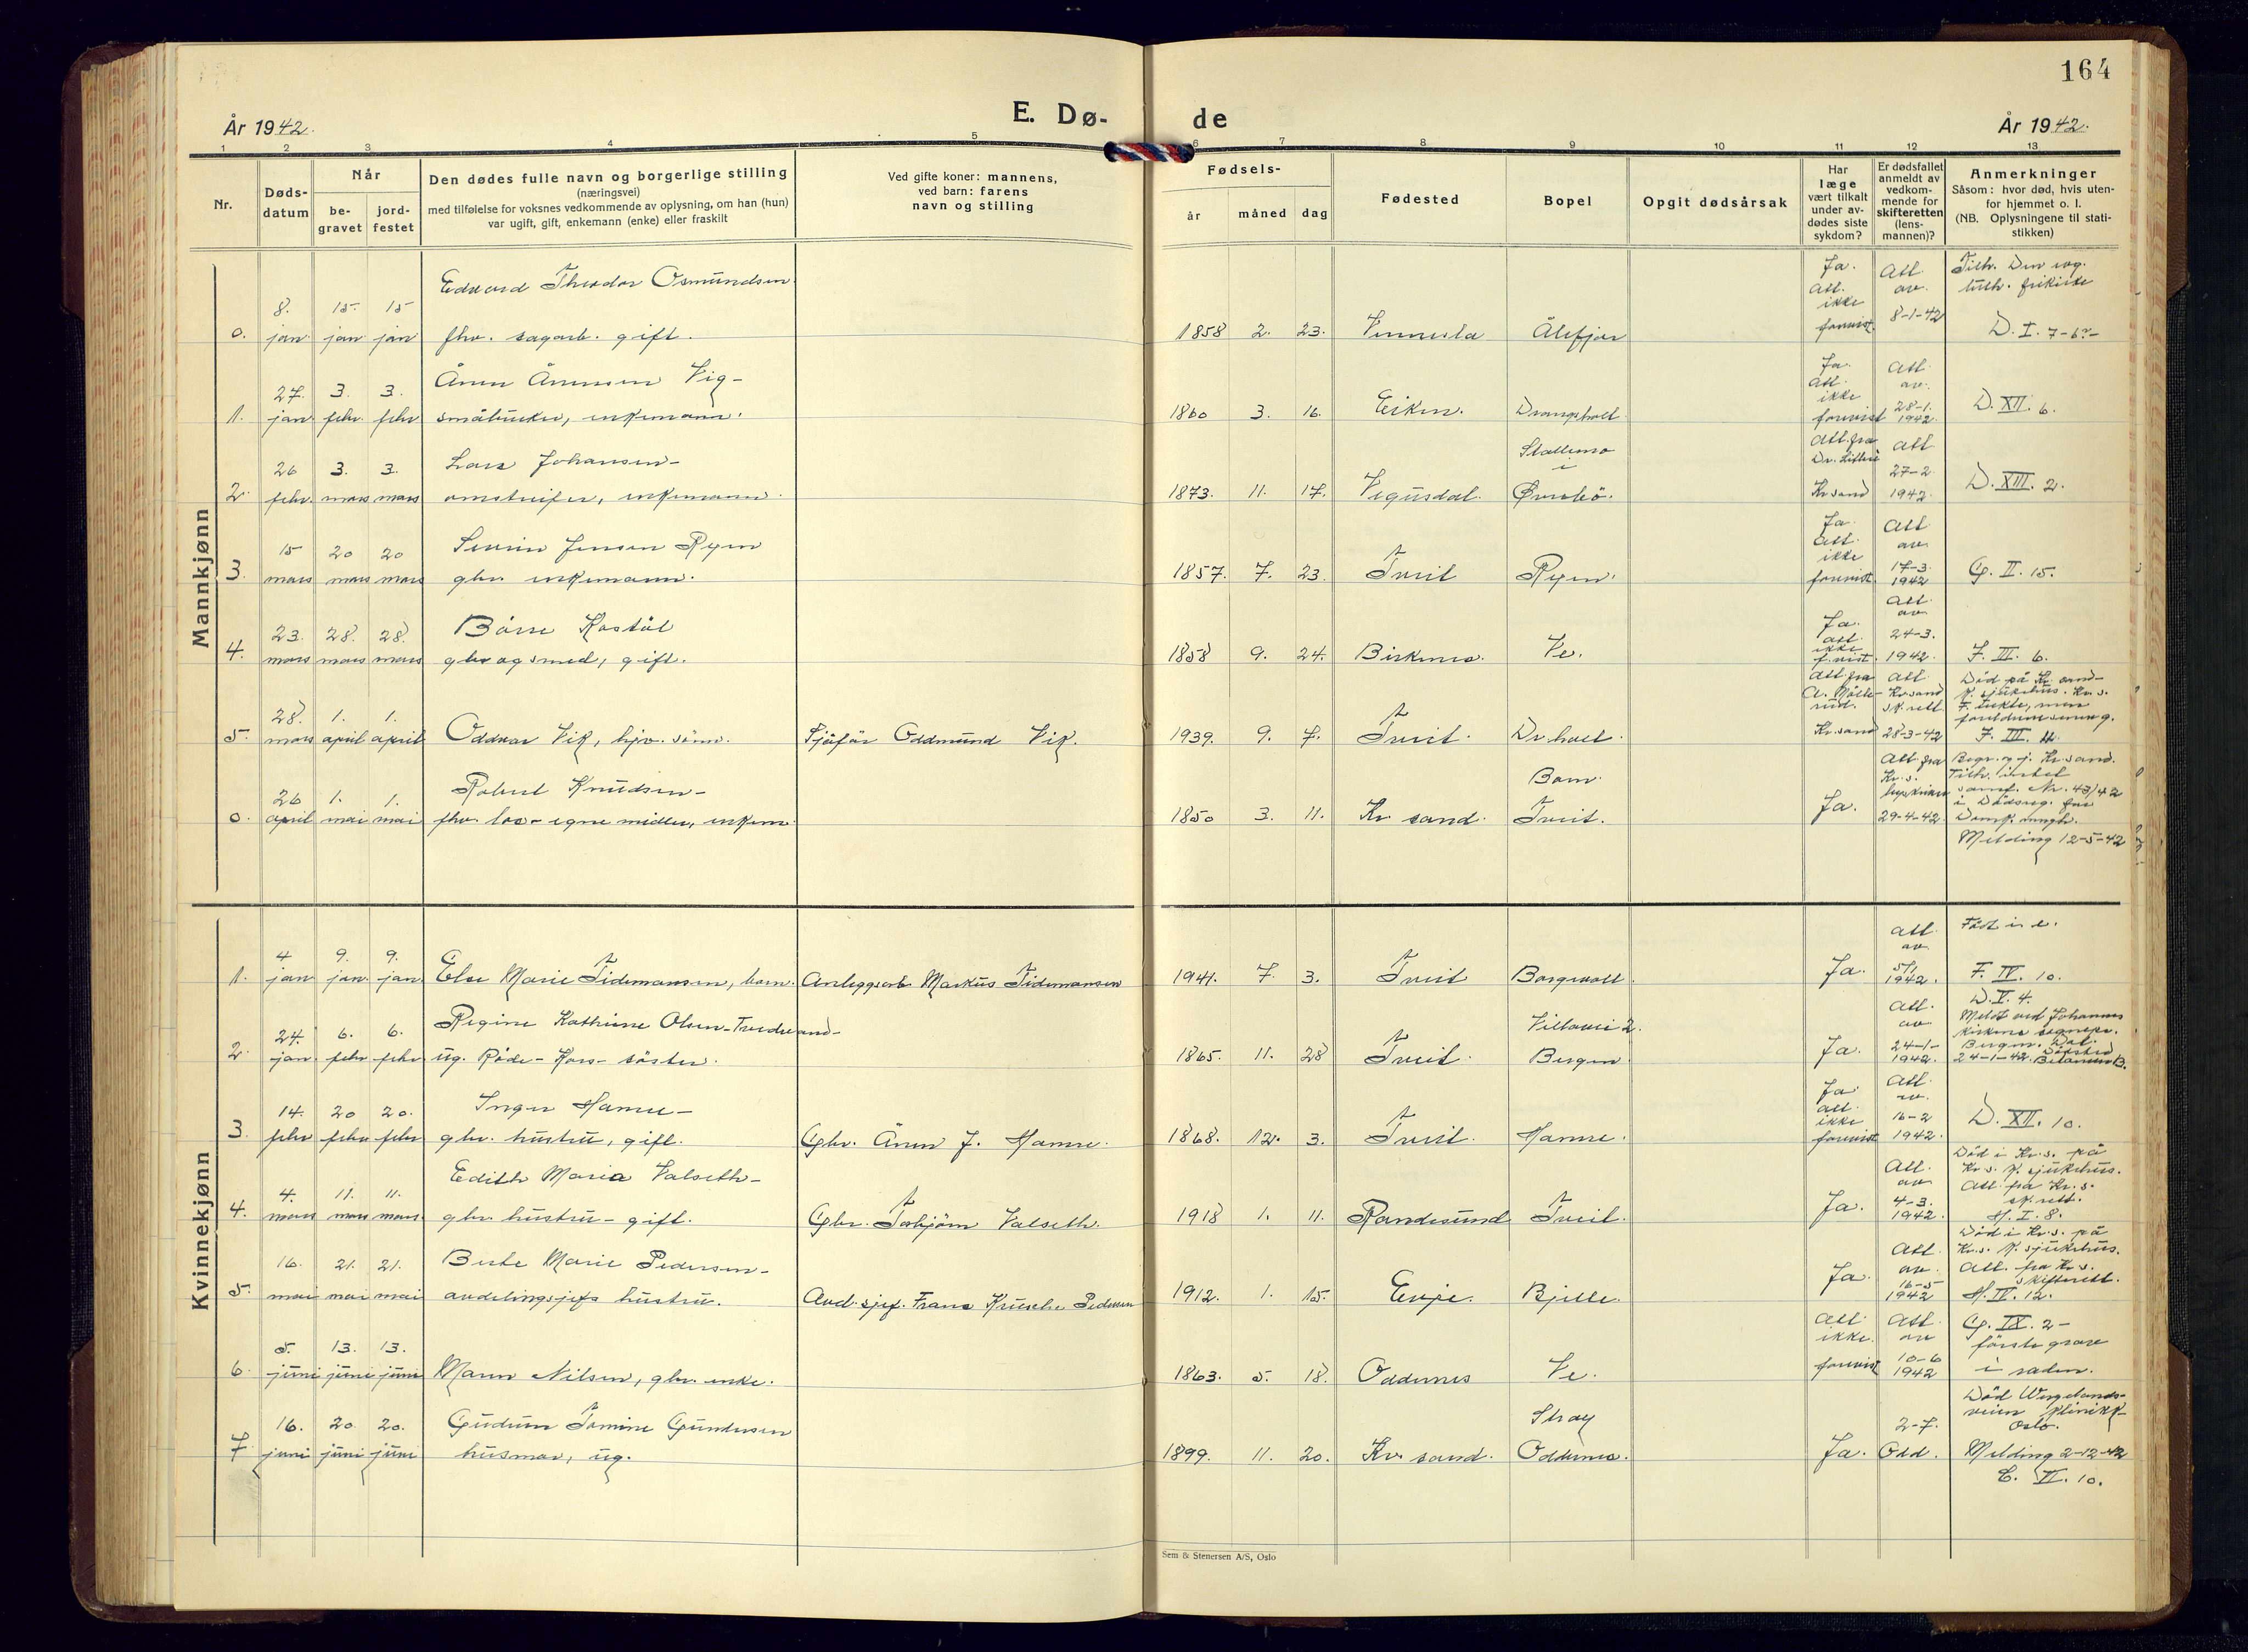 164
År 1942.
E. Dø-
de
År 1942.
1 2 3 4 5 6 7 8 9 10 11 12 13
Nr.
Døds-
datum
Når
be-
gravet
jord-
festet
Den dødes fulle navn og borgerlige stilling
(næringsvei)
med tilføielse for voksnes vedkommende av oplysning, om han (hun)
var ugift, gift, enkemann (enke) eller fraskilt
Ved gifte koner: mannens,
ved barn: farens
navn og stilling
Fødsels-
år måned dag
Fødested
Bopel
Opgit dødsårsak
Har
læge
vært tilkalt
under av-
dødes siste
sykdom?
Er dødsfallet
anmeldt av
vedkom-
mende for
skifteretten
(lens-
mannen)?
Anmerkninger
Såsom: hvor død, hvis uten-
for hjemmet o. l.
(NB. Oplysningene til stati-
stikken)
Mannkjønn
0. 8. jan 15. jan 15 jan
Edvard Theodor Osmundsen
fhv. sagarb. gift.
1858 2. 23. Vennesla Ålefjær
Ja. Att. ikke forevist
Att. av. 8-1-42
Tilh. Den evg. luth. frikirke
D. I. 7-6?-
1. 27. jan 3. febr. 3. febr
Ånen Ånensen Vig-
småbruker, enkemann.
1860 3. 16. Eiken. Drangsholt
Ja. Att. ikke forevist
Att. av. 28-1. 1942.
D. XII. 6.
2. 26 febr. 3. mars 3. mars
Lars Johansen-
omstreifer, enkemann.
1873. 11. 17. Vegusdal. Stallemo i Øvrebö.
Att. fra Dr. Kr sand
Att 27-2 1942.
D. XIII. 2.
3. 15 mars 20 mars 20 mars
Severin Jensen Ryen
gbr. enkemann.
1857. 7. 23. Tveit Ryen.
Ja. Att. ikke forevist
Att av. 17-3. 1942
G. II. 15.
4. 23. mars 28. mars 28. mars
Bårre Kostöl
gbr og smed, gift.
1858 9. 24. Birkenes. Ve.
Ja. att. ikke f.vist.
Att. av 24-3. 1942.
F. III. 6.
5. 28. mars 1. april 1. april
Oddvar Vik, hjv. sönn. Sjåför Oddmund Vik.
1939. 9. 7. Tveit. Dr holt.
Att. fra Kr. sand
Att. Kr. sand sk. rett 28-3-42
Död på Kr. sand- K. sjukehus. Kr. s.
F. III. 4.
0. 26 april 1. mai 1. mai
Robert Knudsen-
fhv. los- egne midler, enkem.
1850 3. 11. Kr. sand. Boen. Tveit.
Ja.
Att. fra Kr. s. 29-4-42.
Begr. og j. Kr. sand.
Tilh. samf. Nr. 43/42
i Dödsreg. for
Domk. menigh.
Melding 12-5-42
Kvinnekjønn
1. 4 jan 9. jan. 9. jan
Else Marie Tidemansen, barn. Anleggsarb. Markus Tidemansen
1941. 7. 3. Tveit Borgevoll.
Ja.
att. av 5/1 1942.
Födt i e.
F. IV. 10.
2. 24. jan. 6. febr 6. febr
Regine Kathrine Olsen-Tvedsand-
ug. Röde-Kors-söster.
1865. 11. 28 Tveit. Villavei 2. Bergen
Ja.
Att. av 24-1- 1942.
D. V. 4.
Meldt ved Johannes
kirkens sognepr.
Bergen. Dat.
24-1-42. Dödsted Betanien B.
3. 14. febr 20 febr 20. febr
Inger Hamre-
gbr. hustru, gift. Gbr. Ånen J. Hamre.
1868. 12. 3. Tveit. Hamre.
Ja. att. ikke forevist
Att. av. 16-2 1942.
D. XII. 10.
4. 4. mars 11. mars 11. mars
Edith Maria Valseth-
gbr. hustru - gift. Gbr. Torbjörn Valseth.
1918 1. 11. Randesund Tveit.
Ja.
Att. av 4-3. 1942.
Död i Kr. s. på
Kr. s. K. sjukehus.
Att. fra Kr. s.
sk. rett.
H. I. 8.
5. 16. mai 21. mai 21. mai
Berte Marie Pedersen-
avdelingsjefs hustru. Avd. sjef. Frans Krusche Pedersen
1912. 1. 15. Evje. Bjelle.
Ja.
Att. av. 16-5 1942
Död i Kr. s. på
Kr. s. K. sjukehus.
Att. fra Kr. s.
skifterett.
H. IV. 12.
6. 5. juni 13. juni 13. juni
Maren Nilsen, gbr. enke.
1863. 5. 18. Oddernes Ve.
Att. ikke. forevist
Att. av 10-6 1942
G. IX. 2-
förste grave
i raden.
7. 16. juni 20 juni 20. juni
Gudrun Tomine Gundersen
husmor, ug.
1899. 11. 20. Kr. sand. Stray Oddernes.
Ja.
2-7. Odd.
Död Wergelands-
veien klinikk-
Oslo.
Melding 2-12-42
C. VI. 10.
Sem & Stenersen A/S, Oslo